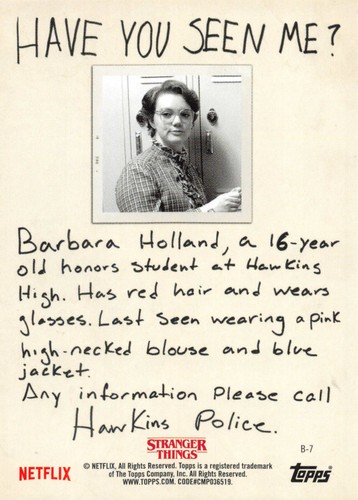 HAVE YOU SEEN ME?
Barbara Holland, a 16-year
old honors student at Hawkins
High. Has red hair and wears
glasses. Last seen wearing a pink
high-necked blouse and blue
jacket.
Any information Please call
Hawkins Police.
STRANGER
THINGS
B-7
NETFLIX
© NETFLIX. All Rights Reserved. Topps is a registered trademark
of The Topps Company, Inc. All Rights Reserved.
WWW.TOPPS.COM. CODE#CMP036519.
Topps